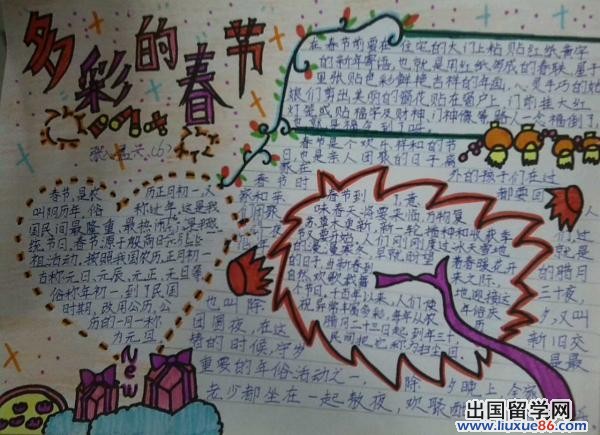 多彩的春节
在春节前要在住宅的大门上粘贴红纸黄字
的新年寄语,也就是用红纸写成的春联。屋子
里张贴色彩鲜艳吉祥的年画,心灵手巧的姑
娘们剪出美丽的窗花贴在窗户上,门前挂大红
灯笼或贴福字及财神、门神像等,路人一念福倒了,
春节是个欢乐祥和的节
日,也是亲人团聚的日子
外的孩子们在过
春节时都要回
家欢聚
春节,是农历正月初一,又
叫阴历年,俗称过年。这是我
国民间最隆重、最热闹的
统节日。春节源于殷商时
祖活动。按照我国农历,正月初一
古称元日、元辰、元正、元旦等
俗称年初一,到了民国
时期,改用公历,公
历的一月一称
为元旦
New
春节到了,意
味春天将要来临,万物复
苏草木更新,新一轮播种和收获季
人们刚刚度过冰天雪地
早就盼望着春暖花开
的日子,当新春到来之际,
自然欢歌
地迎接这
个节日。千百年以来,人们使
年俗
每年从农历
腊月二十三日起到年三十,
民间把
称为扫尘日
人
们过
就是
的腊月
三十夜,
夕,又叫
也叫除
团圆夜,在这新旧交
替的时候,守岁是最
重要的年俗活动之一,除夕晚上,全家
老少都坐在一起熬夜,欢聚
出国留学网
www.liuxue86.com